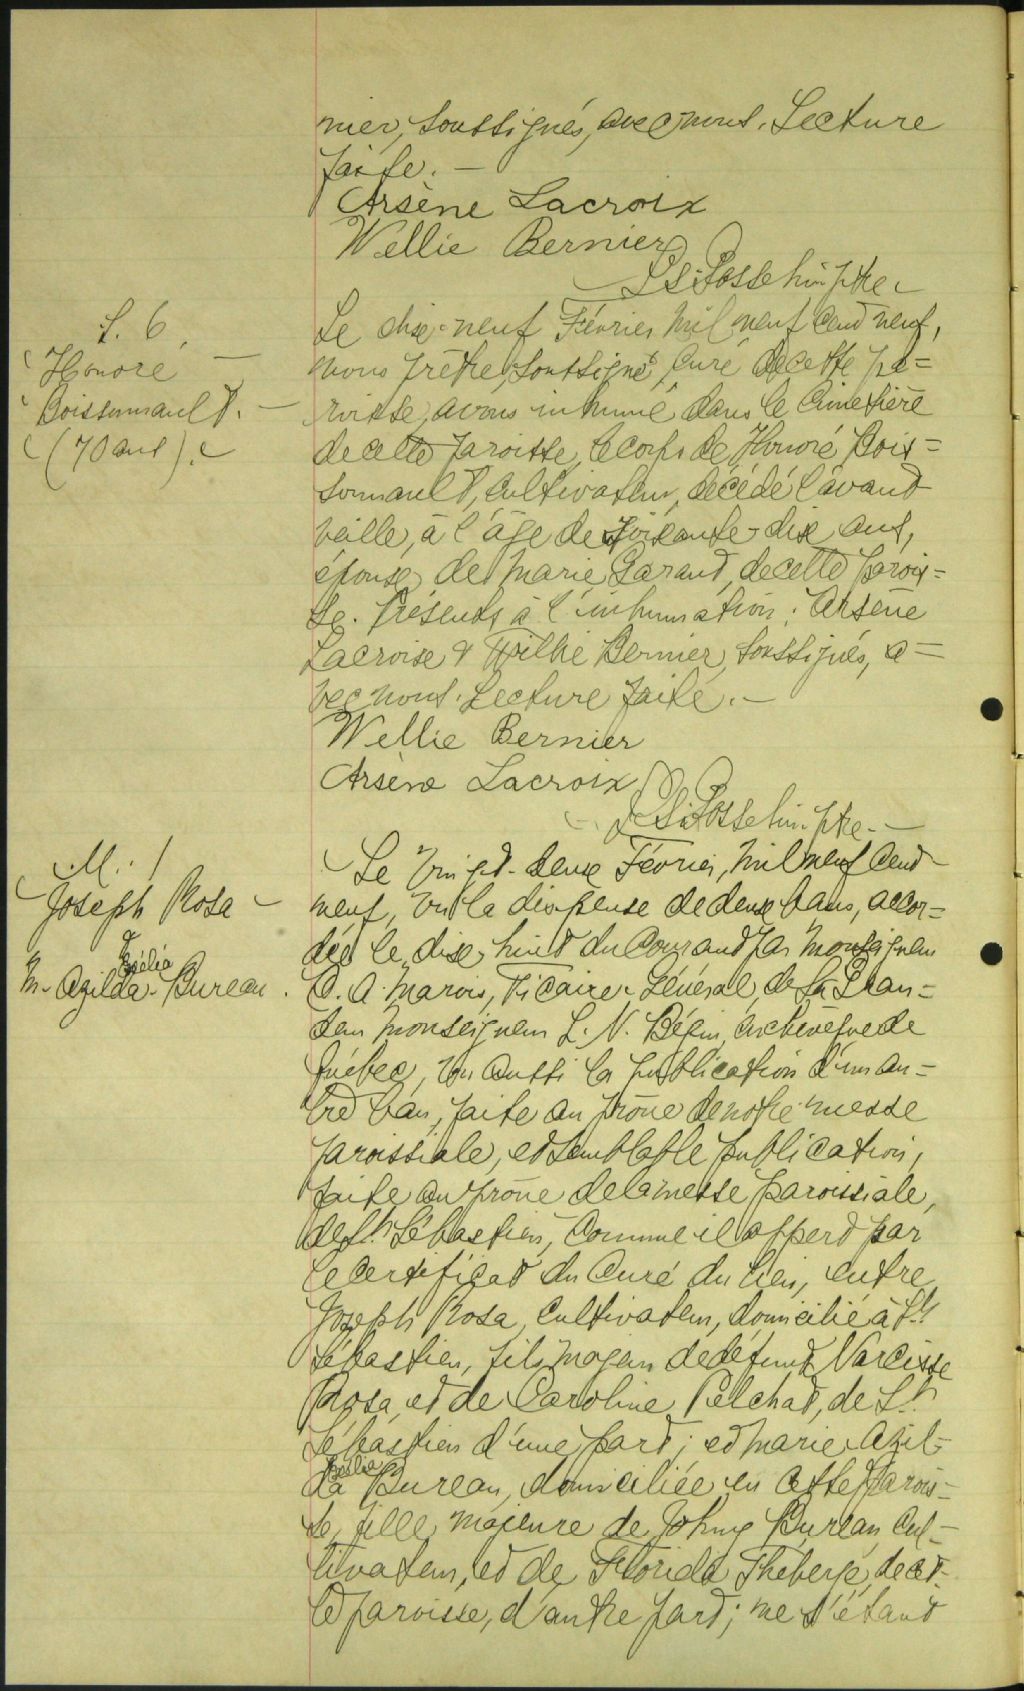 nier, soussignés, avec nous. Lecture
faite. —
Arsène Lacroix
Wellie Bernier
ptre.
S. 6
Honoré —
Boissonnault. —
(70 ans).
Le dix-neuf Février mil neuf cent neuf,
nous prêtre, soussigné, curé de cette pa=
roisse, avons inhumé dans le cimetière
de cette paroisse, le corps de Honoré Bois=
sonnault, cultivateur, décédé l'avant
veille, à l'âge de soixante-dix ans,
époux de Marie Garant, de cette parois=
se. Présents à l'inhumation: Arsène
Lacroix & Willie Bernier, soussignés, a=
vec nous. Lecture faite. —
Wellie Bernier
Arsène Lacroix
ptre. —
M. 1
Joseph Rosa —
&
M. Azilda Bureau.
Le vingt-deux Février, mil neuf cent
neuf, vu la dispense de deux bans, accor=
dée le dix-huit du courant par Monseigneur
C. A. Marois, Vicaire Général, de Sa Gran=
deur Monseigneur L. N. Bégin, archevêque de
Québec, vu aussi la publication d'un au=
tre ban, faite au prône de notre messe
paroissiale, et semblable publication,
faite au prône de la messe paroissiale,
de St. Sébastien, comme il appert par
le certificat du Curé du lieu, entre
Joseph Rosa, cultivateur, domicilié à St.
Sébastien, fils majeur de défunt Narcisse
Rosa, et de Caroline Pelchat, de St.
Sébastien d'une part; et Marie Azil=
da Bureau, domiciliée en cette parois=
se, fille majeure de Johny Bureau, cul=
tivateur, et de Florida Theberge, de cet=
te paroisse, d'autre part; ne s'étant